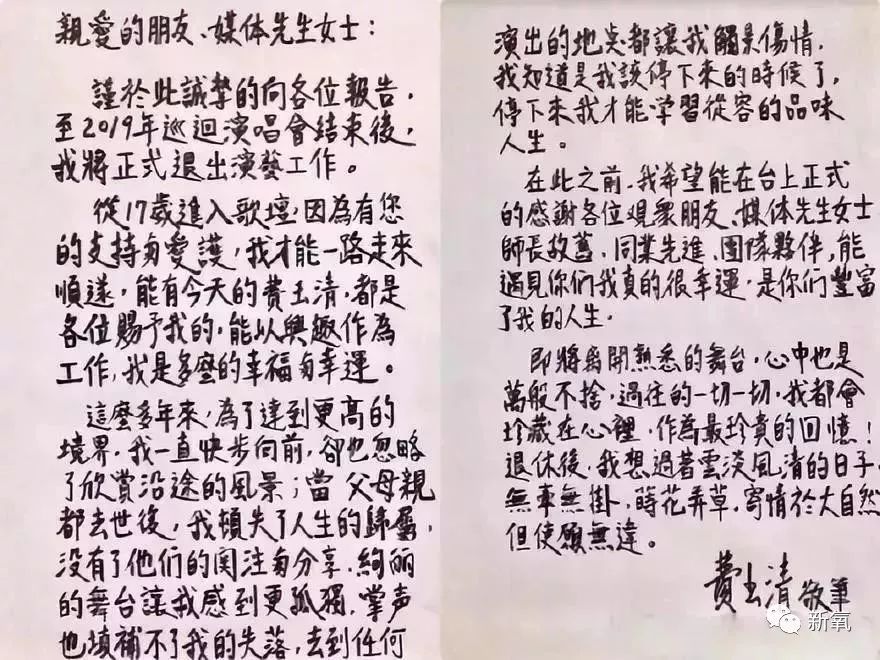 親愛的朋友、媒体先生女士:
謹於此誠摯的向各位報告,
至2019年巡迴演唱會結束後,
我將正式退出演藝工作。
從17歲進入歌壇,因為有您
的支持與愛護,我才能一路走來
順遂,能有今天的費玉清,都是
各位賜予我的,能以興趣作為
工作,我是多麼的幸福與幸運。
這麼多年來,為了達到更高的
境界,我一直快步向前,卻也忽略
了欣賞沿途的風景;當父母親
都去世後,我頓失了人生的歸屬,
没有了他們的関注與分享,絢丽
的舞台讓我感到更孤獨,掌声
也填補不了我的失落,去到任何
演出的地點都讓我觸景傷情,
我知道是我該停下來的時候了,
停下來我才能学習從容的品味
人生。
在此之前,我希望能在台上正式
的感謝各位観衆朋友、媒体先生女士
師長故舊、同業先進、團隊夥伴,能
遇見你們我真的很幸運,是你們豐富
了我的人生,
即將离開熟悉的舞台,心中也是
萬般不捨,過往的一切一切,我都會
珍藏在心裡,作為最珍貴的回憶!
退休後,我想過著雲淡風清的日子,
無牽無掛,蒔花弄草,寄情於大自然
但使願無違。
費玉清 敬筆
新氧